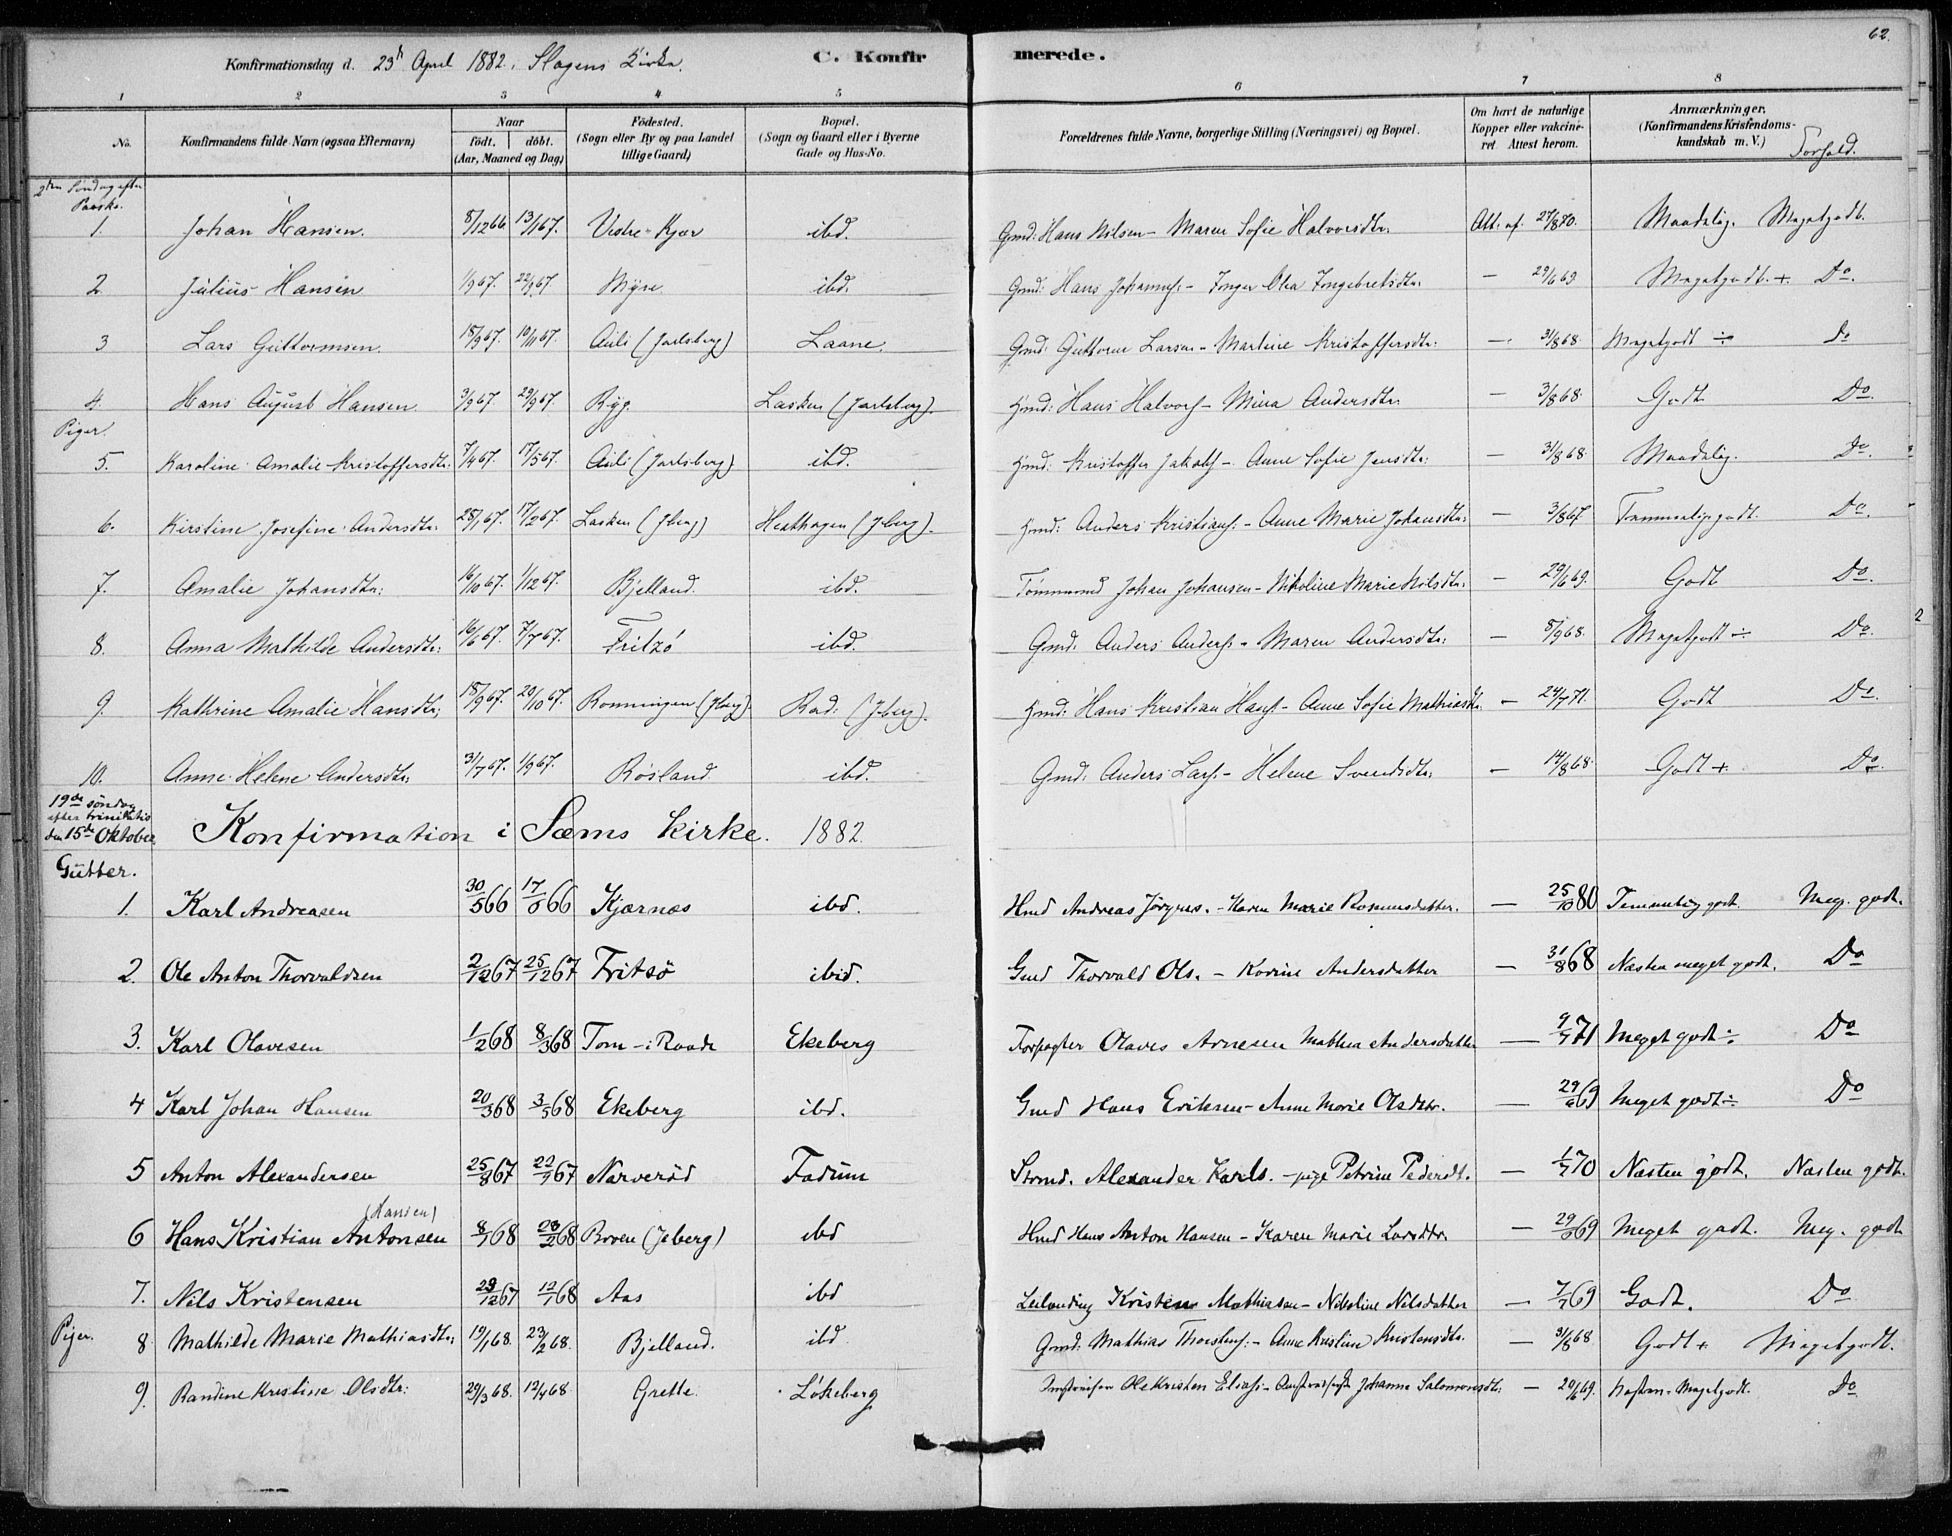 62.
Konfirmationsdag d. 23d April 1882. Slagens Kirke. C. Konfirmerede.
1 2 3 4 5 6 7 8
No. Konfirmandens fulde Navn (ogsaa Efternavn) Naar født. døbt. (Aar, Maaned og Dag) Fødested. (Sogn eller By og paa Landet tillige Gaard) Bopæl. (Sogn og Gaard eller i Byerne Gade og Hus-No. Forældrenes fulde Navne, borgerlige Stilling (Næringsvei) og Bopæl. Om havt de naturlige Kopper eller vakcineret. Attest herom. Anmærkninger. (Konfirmandens Kristendomskundskab m. V.) Forhold.
2den Søndag efter Paaske.
1. Johan Hansen. 8/12 66 13/1 67. Vestre-Kjær ibd. Gmd: Hans Nilsen - Maren Sofie Halvorsdtr: Att. af. 27/8 70. Maadelig. Megetgodt.
2. Julius Hansen 1/9 67. 22/9 67 Myre ibd. Gmd: Hans Johannes: - Inger Olea Ingebretsdtr: — 29/6 69 Megetgodt. + Do.
3 Lars Guttormsen. 18/9 67. 10/11 67. Auli (Jarlsberg) Laane. Gmd: Guttorm Larsen - Martine Kristoffersdtr: — 31/8 68. Megetgodt ÷ Do
4. Hans August Hansen 3/9 67. 29/9 67. Ryg. Lasken (Jarlsberg). Hmd: Hans Halvors - Mina Andersdtr: — 3/8 68. Godt Do.
Piger.
5. Karoline Amalie Kristoffersdtr: 7/4 67. 17/5 67. Auli (Jarlsberg) ibd. Hmd: Kristoffer Jakobs - Anne Sofie Jensdtr: — 31/8 68 Maadelig. Do.
6. Kirstine Josefine Andersdtr: 28/1 67. 17/2 67. Lasken (Jberg) Hesthagen (Jberg). Hmd: Anders Kristians: - Anne Marie Johansdtr: — 3/8 67. Temmeliggodt. Do.
7. Amalie Johansdtr: 16/10 67. 1/12 67. Bjelland. ibd. Tømmermd Johan Johansen - Nikoline Marie Nilsdtr: — 29/6 69. Godt Do.
8. Anna Mathilde Andersdtr: 16/6 67. 7/7 67. Fritzø ibd. Gmd: Anders Anders: - Maren Andersdtr: — 8/9 68. Megetgodt ÷ Do.
9. Kathrine Amalie Hansdtr; 18/9 67. 20/10 67. Rønningen (Jberg) Rad: (Jberg). Hmd: Hans Kristian Hans: - Anne Sofie Mathiasdtr — 24/7 71. Godt Do.
10. Anne Helene Andersdtr: 31/7 67. 1/9 67. Røsland ibd. Gmd: Anders Lars: - Helene Svendsdtr: — 14/8 68. Godt + Do.
19de søndag efter trinitatis den 15de Oktober Konfirmation i Sæms kirke. 1882.
Gutter.
1. Karl Andreasen 30/5 66 17/6 66 Kjærnæs ibd. Hmd Andreas Jørgns. - Karen Marie Rasmusdatter. — 25/10 80 Temmelig godt. Meg. godt.
2. Ole Anton Thorvaldsen 2/12 67 25/12 67 Fritsø ibid. Gmd Thorvald Ols. - Korine Andersdatter — 31/8 68 Næsten meget godt. Do
3. Karl Olavesen 1/2 68 8/3 68 Tom - i Raade Ekeberg Forpagter Olaves Arnesen Mathea Andersdatter — 9/7 71 Meget godt ÷ Do
4 Karl Johan Hansen 20/3 68 3/5 68 Ekeberg ibd. Gmd Hans Eriksen - Anne Marie Olsdtr. — 29/6 69 Meget godt ÷ Do
5 Anton Alexandersen 25/8 67 22/9 67 Narverød Fadum Stomd. Alexander Karls. - pige Petrine Pedersdt. — 1/7 70 Næsten godt. Næsten godt.
(Hansen)
6 Hans Kristian Antonsen 8/1 68 23/2 68 Broen (Jeberg) ibd Hmd Hans Anton Hansen - Karen Marie Larsdtr. — 29/6 69 Meget godt. Meg. godt
7. Nils Kristensen 29/12 67 12/1 68 Aas ibd Leilending Kristen Mathiasen - Nikoline Nilsdatter — 7/7 69 Godt. Do
Piger. 8. Mathilde Marie Mathiasdtr; 19/1 68. 23/2 68. Bjelland. ibd. Gmd: Mathias Thorstens: - Anne Kristine Kristensdtr. — 31/8 68. Godt + Megetgodt.
9. Randine Kristine Olsdtr: 29/3 68. 12/4 68. Grette. Løkeberg Ole Kristen Elias: - Johanne Salomonsdtr; — 20/6 69. Næsten Megetgodt. Do